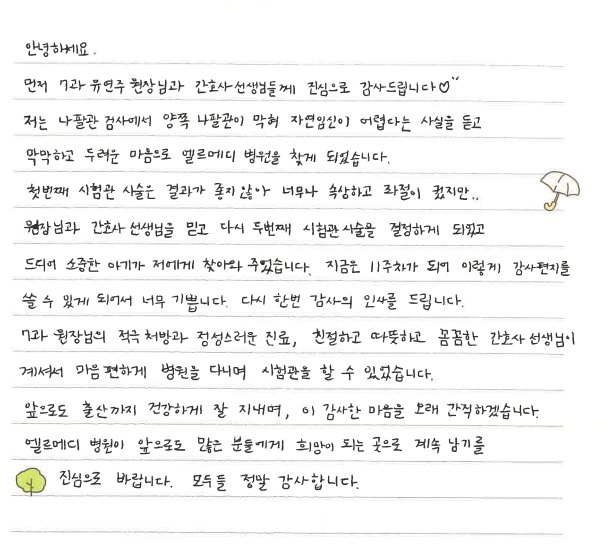 안녕하세요.
먼저 7과 유연주 원장님과 간호사 선생님들께 진심으로 감사드립니다♡
저는 나팔관 검사에서 양쪽 나팔관이 막혀 자연임신이 어렵다는 사실을 듣고
막막하고 두려운 마음으로 엘르메디 병원을 찾게 되었습니다.
첫번째 시험관 시술은 결과가 좋지 않아 너무나 속상하고 좌절이 컸지만..
원장님과 간호사 선생님을 믿고 다시 두번째 시험관 시술을 결정하게 되었고
드디어 소중한 아기가 저에게 찾아와 주었습니다. 지금은 11주차가 되어 이렇게 감사편지를
쓸 수 있게 되어서 너무 기쁩니다. 다시 한번 감사의 인사를 드립니다.
7과 원장님의 적극 처방과 정성스러운 진료, 친절하고 따뜻하고 꼼꼼한 간호사 선생님이
계셔서 마음 편하게 병원을 다니며 시험관을 할 수 있었습니다.
앞으로도 출산까지 건강하게 잘 지내며, 이 감사한 마음을 오래 간직하겠습니다.
엘르메디 병원이 앞으로도 많은 분들에게 희망이 되는 곳으로 계속 남기를
진심으로 바랍니다. 모두들 정말 감사합니다.